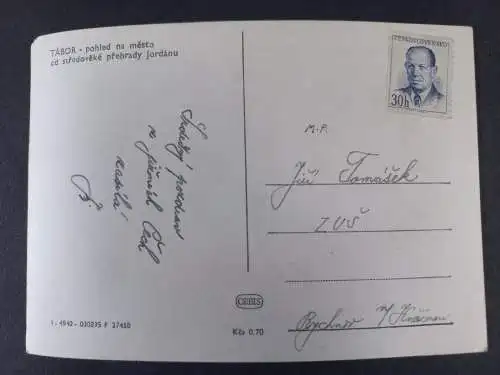 TÁBOR - pohled na město
od středověké přehrady Jordánu
Srdečný pozdrav
z jižních Čech
zasílá
ČESKOSLOVENSKO
30h
M.P.
Jiří Tomášek
ZUŠ
Rychnov n/Kněžnou
ORBIS
1-4942-030895 F 27450
Kčs 0,70